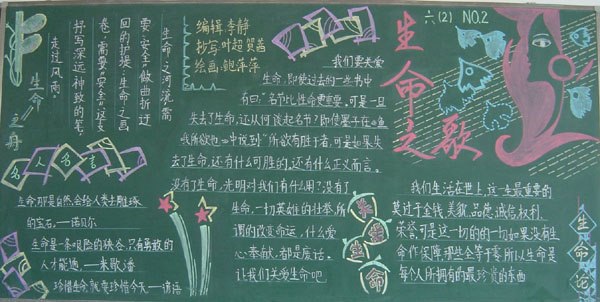 六(2) NO.2
生命之歌
编辑 李静
抄写 叶超 贺茜
绘画 鲍萍萍
我们要关爱
生命，即使过去的一些书中
有曰：“名节比性命更重要。可是一旦
失去了生命，还从何谈起名节？即使墨子在《鱼
我所欲也》中说到“所欲有胜于者，可是如果失
去了生命，还有什么可胜的，还有什么正义而言。
没有了生命，光明对我们有什么用？没有了
生命，一切英雄的壮举，所
谓的改变命运，什么爱
心奉献，都是废话。
让我们关爱生命吧
关爱生命
生命之河，流需
要“安全”做曲折迂
回的护堤；生命之画
卷，需要“安全”这支
抒写深远神致的笔
走过风雨
生命之舟
名人名言
生命，那是自然会给人类去雕琢
的宝石。——诺贝尔
生命是一条艰险的峡谷，只有勇敢的
人才能通。——米歇潘
珍惜生命就要珍惜今天——谚语
我们生活在世上，这一生最重要的
莫过于金钱、美貌、品德、诚信、权利、
荣誉，可是这一切的一切如果没有生
命作保障，那些全等于零，所以生命是
每个人所拥有的最珍贵的东西
生命论